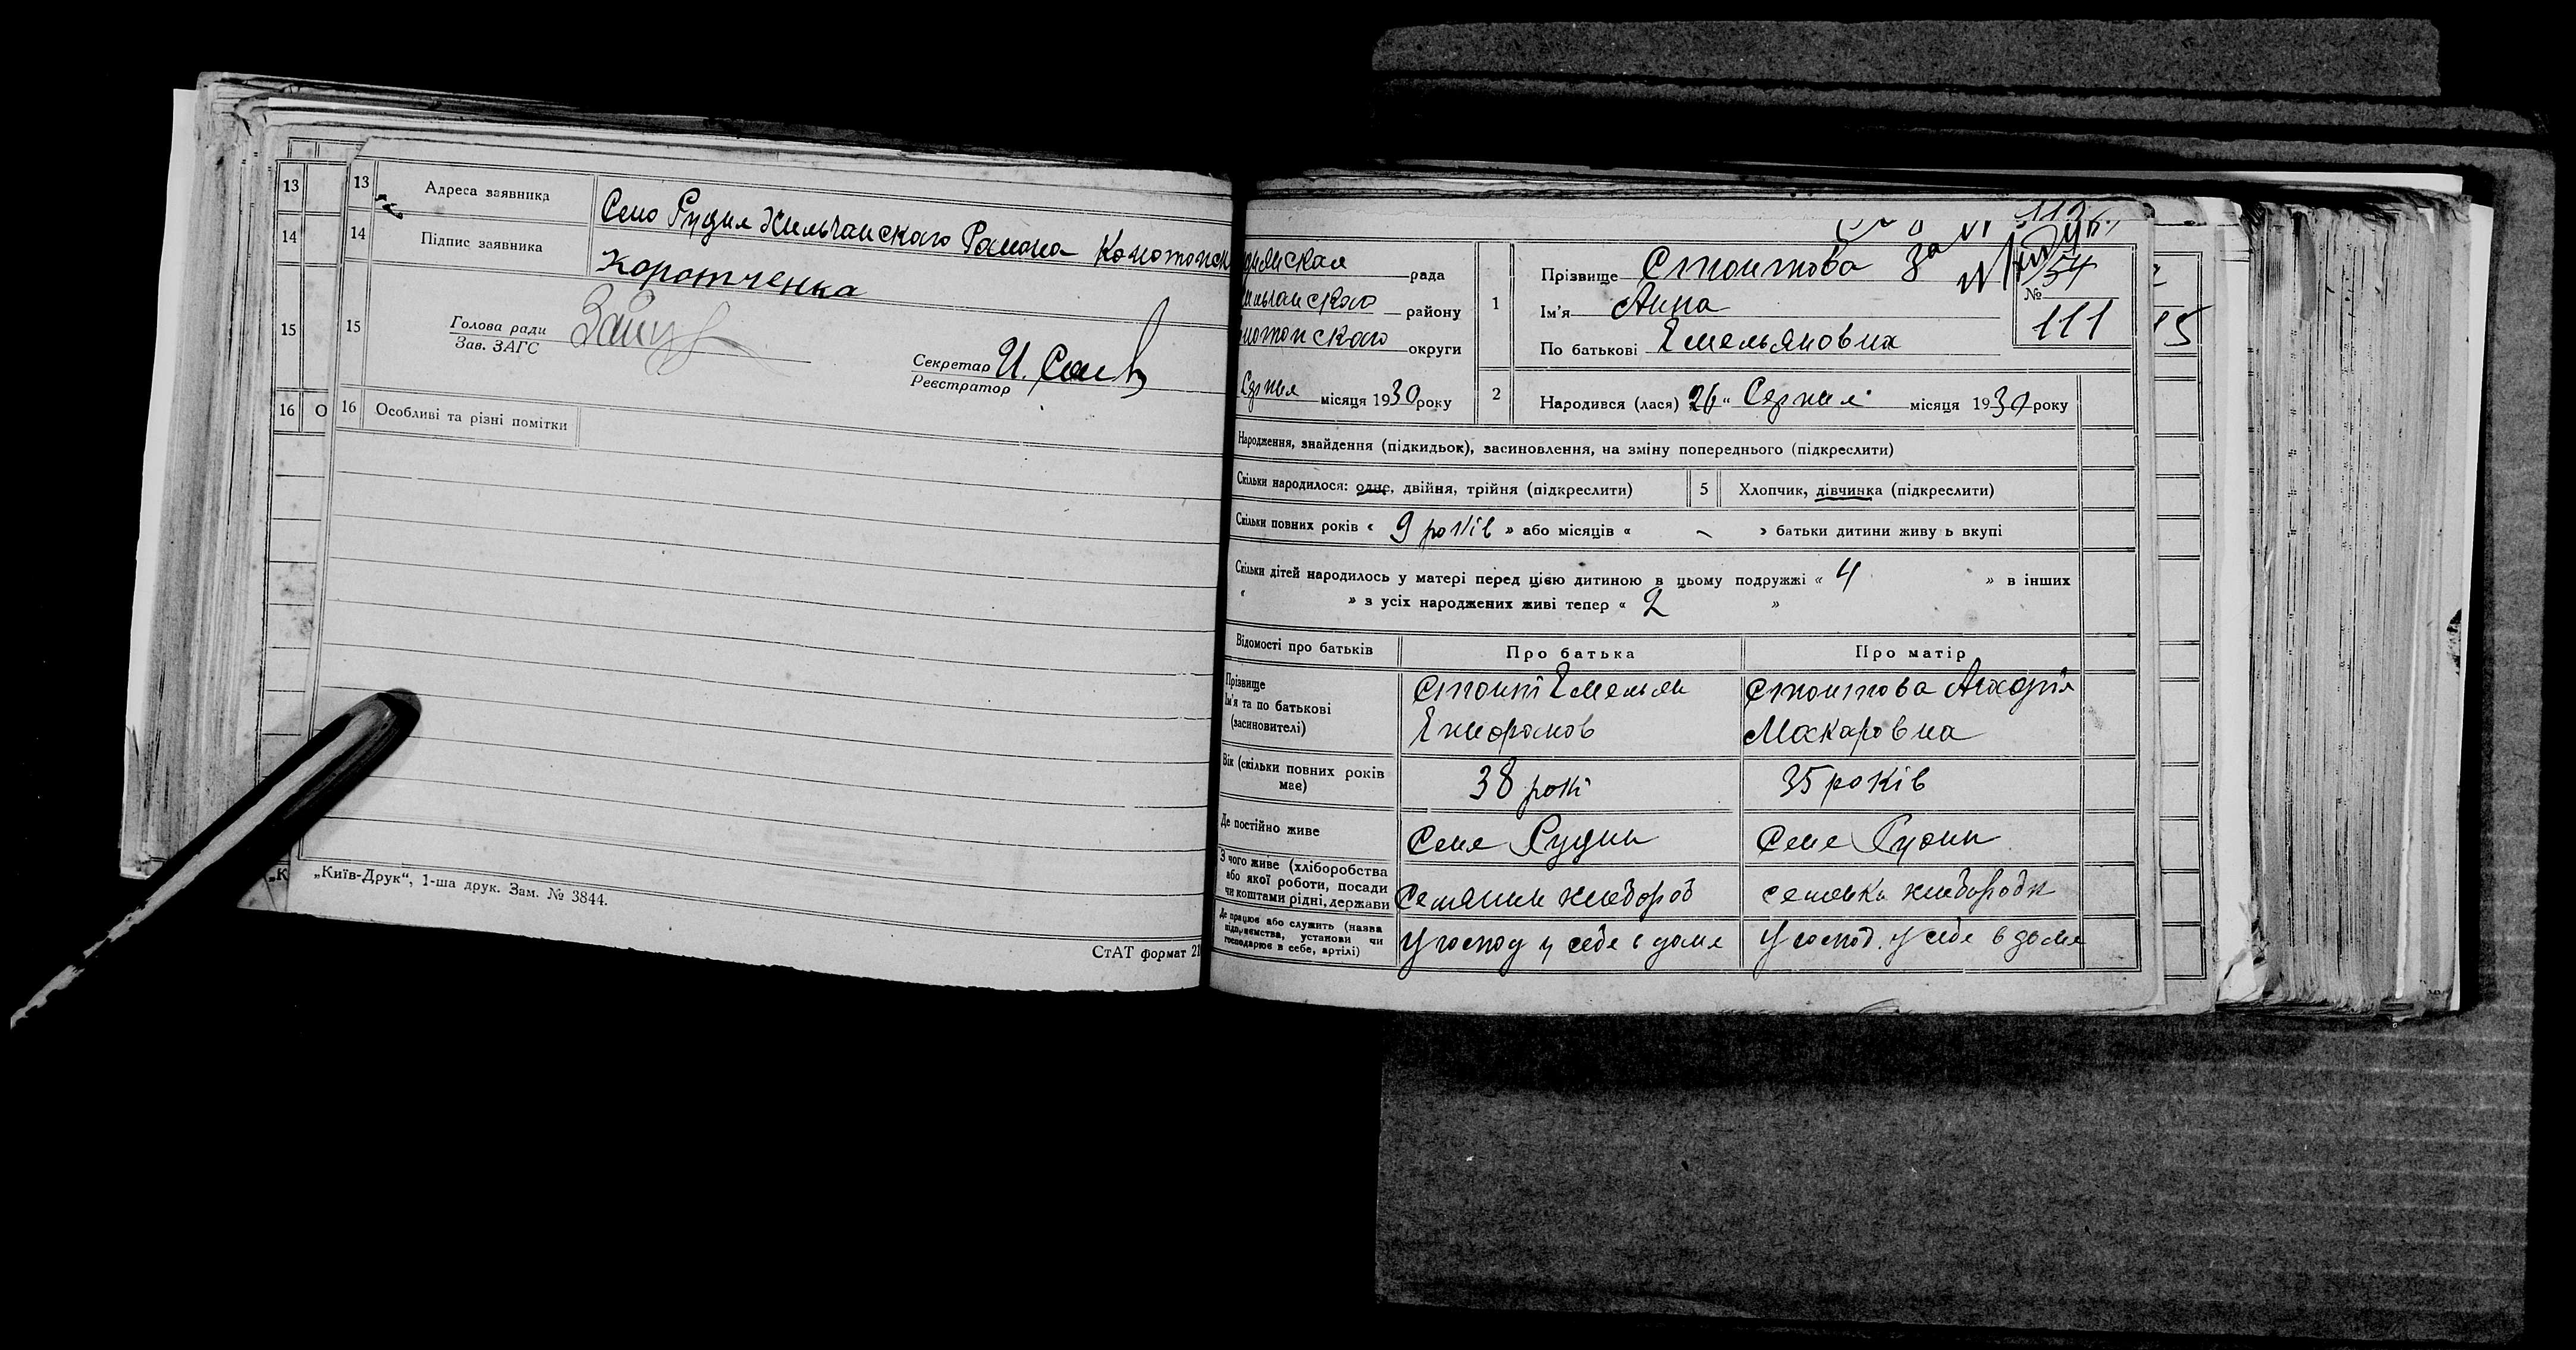 13
14
15
16 О
„К
13 Адреса заявника Село Рудня Хильчанского Района Конотопск
14 Підпис заявника Коротченка
15 Голова ради
Зав. ЗАГС
Секретар И.
Реєстратор
16 Особливі та різні помітки
„Київ-Друк“, 1-ша друк. Зам. № 3844.
СтАТ формат 21
рада
району
нотопского округи
Серпня місяця 1930 року
1 Прізвище Стоитова За №
Ім'я Анна
По батькові Емельяновна
54
№
111
15
2 Народився (лася) 26 „ Серпня місяця 1930 року
Народження, знайдення (підкидьок), засиновлення, на зміну попереднього (підкреслити)
Скільки народилося: одне, двійня, трійня (підкреслити) 5 Хлопчик, дівчинка (підкреслити)
Скільки повних років « 9 років » або місяців « – » батьки дитини живу ь вкупі
Скільки дітей народилось у матері перед цією дитиною в цьому подружжі « 4 » в інших
« » з усіх народжених живі тепер « 2 »
Відомості про батьків Про батька Про матір
Прізвище
Ім'я та по батькові
(засиновителі)
Стоит Емельян
Стоитова
Макаровна
Вік (скільки повних років має) 38 рокі 35 років
Де постійно живе Селе Рудни Селе Рудни
З чого живе (хліборобства
або якої роботи, посади
чи коштами рідні, держави
Селянин хлебороб
селянка
Де працює або служить (назва
підприємства, установи чи
господарює в себе, артілі)
У господ у себе в доме
У господ. у себе в доме